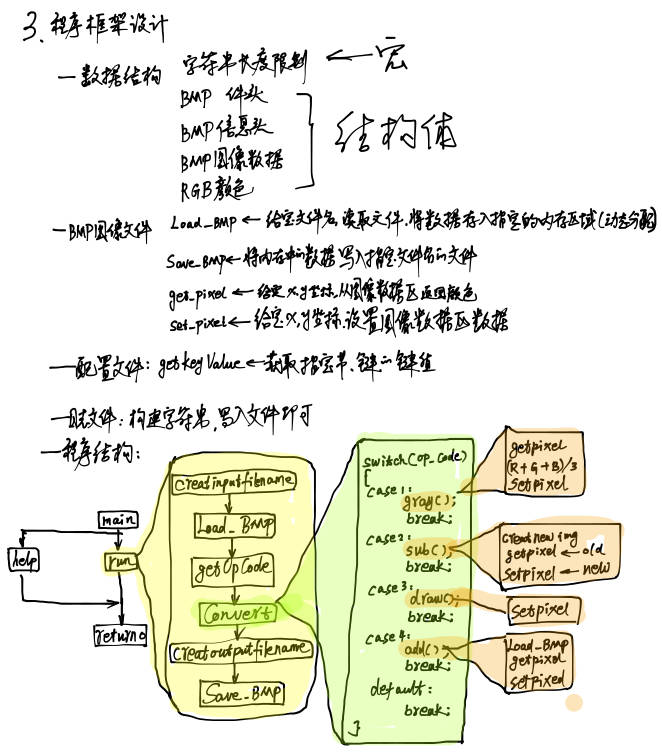 3、程序框架设计
一数据结构 字符串长度限制 ← 宏
BMP 件头
BMP信息头
BMP图像数据
RGB颜色
结构体
一BMP图像文件 Load_BMP ← 给定文件名,读取文件,将数据存入指定的内存区域(动态分配)
Save_BMP ← 将内存中的数据写入指定文件名的文件
get_pixel ← 给定x,y坐标,从图像数据区返回颜色
set_pixel ← 给定x,y坐标,设置图像数据区数据
一配置文件: getkeyValue ← 获取指定节、键的键值
一日志文件: 构建字符串,写入文件即可
一程序结构:
main
help
run
return 0
creatinputfilename
Load_BMP
getOpCode
Convert
creatoutputfilename
Save_BMP
switch(Op_Code)
{
case 1:
gray();
break;
case2:
sub();
break;
case 3:
draw();
break;
case 4:
add();
break;
default:
break;
}
getpixel
(R+G+B)/3
Setpixel
creat new img
getpixel ← old
Setpixel ← new
Setpixel
Load_BMP
getpixel
setpixed